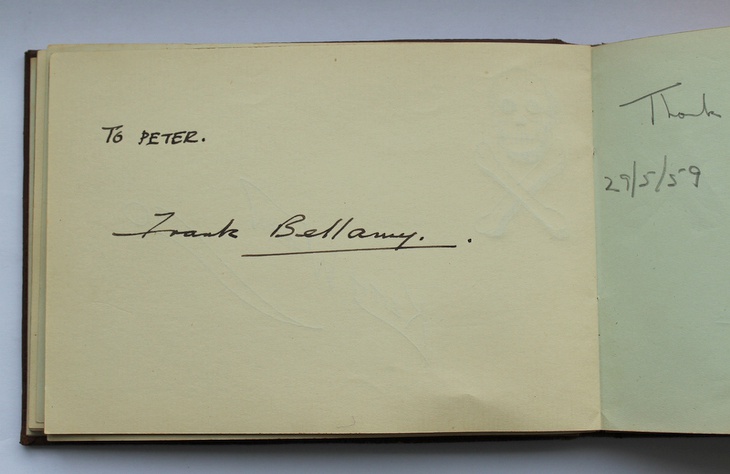 TO PETER.
Frank Bellamy. .
Thank
29/5/59